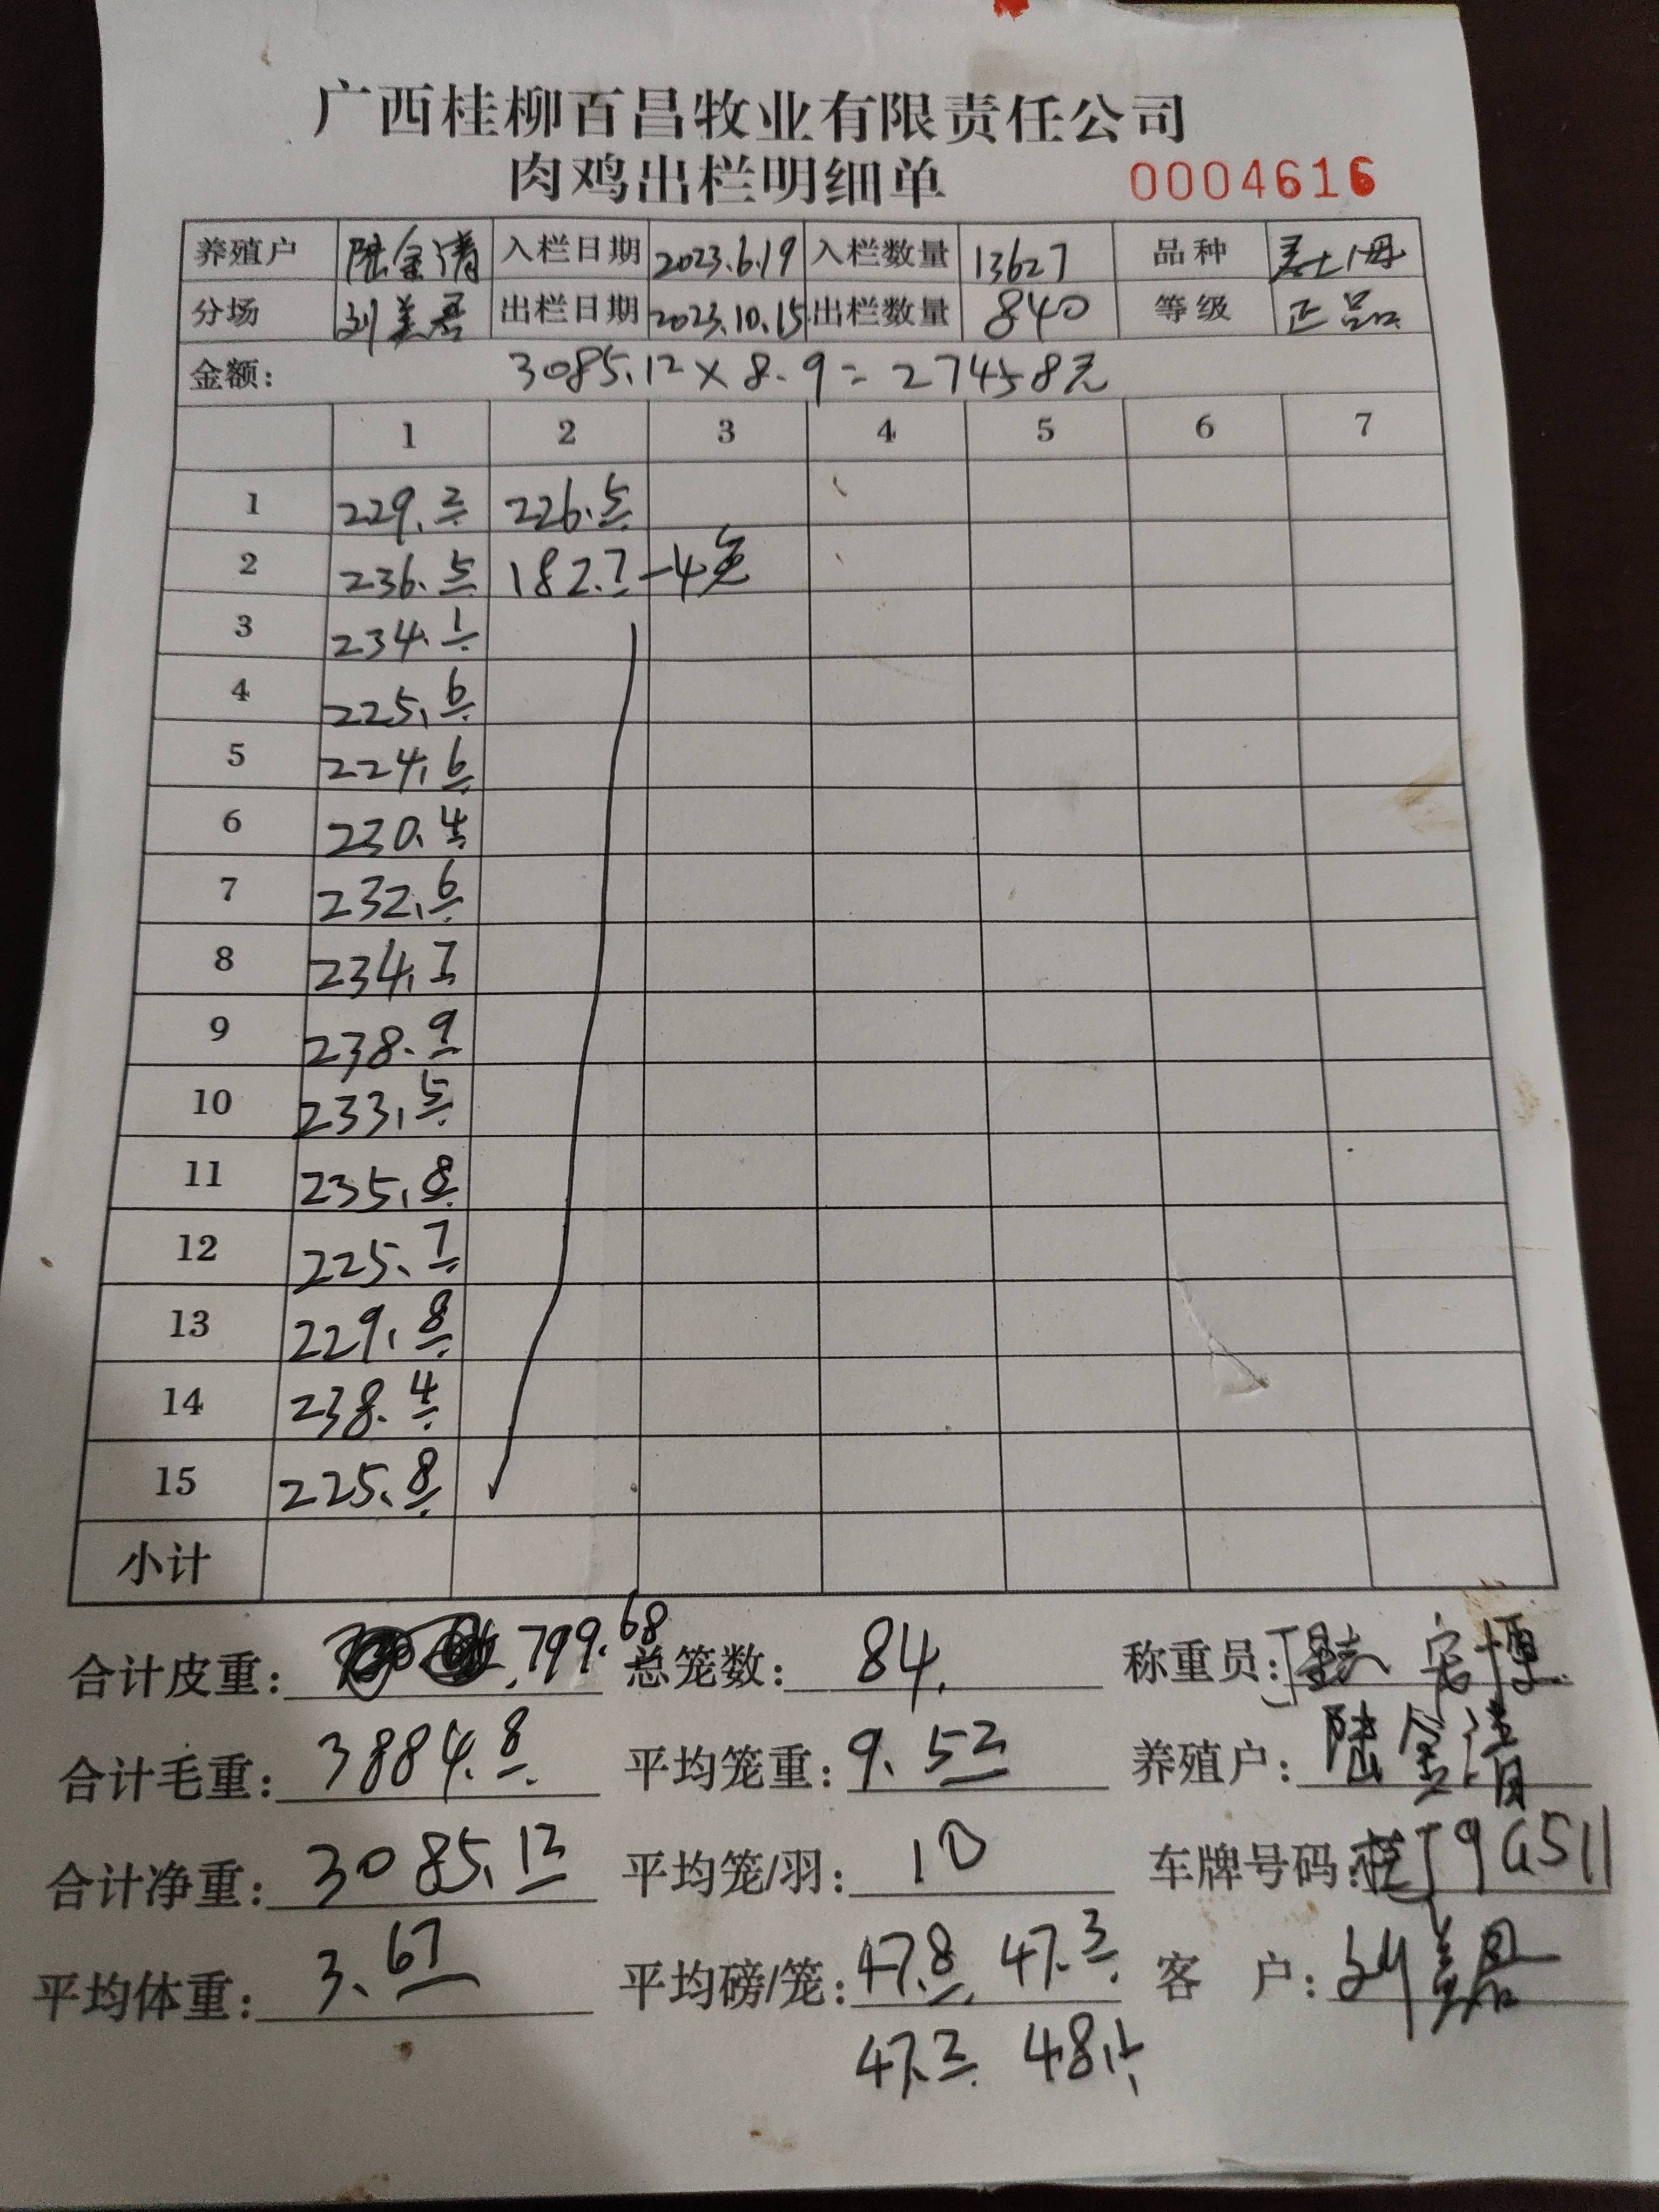 广西桂柳百昌牧业有限责任公司
肉鸡出栏明细单 0004616
养殖户 陆金清 入栏日期 2023.6.19 入栏数量 13627 品种
分场 刘美君 出栏日期 2023.10.15 出栏数量 840 等级 正品
金额: 3085.12×8.9=27458元
1 2 3 4 5 6 7
1 229.2 226.5
2 236.5 182.7 -4笼
3 234.1
4 225.6
5 224.6
6 230.4
7 232.6
8 234.7
9 238.9
10 233.5
11 235.8
12 225.7
13 229.8
14 238.4
15 225.8
小计
合计皮重: 799.68 总笼数: 84. 称重员:
合计毛重: 3884.8 平均笼重: 9.52 养殖户: 陆金清
合计净重: 3085.12 平均笼/羽: 10 车牌号码: 桂J9G511
平均体重: 3.67 平均磅/笼: 47.8 47.3 客 户: 刘美君
47.2